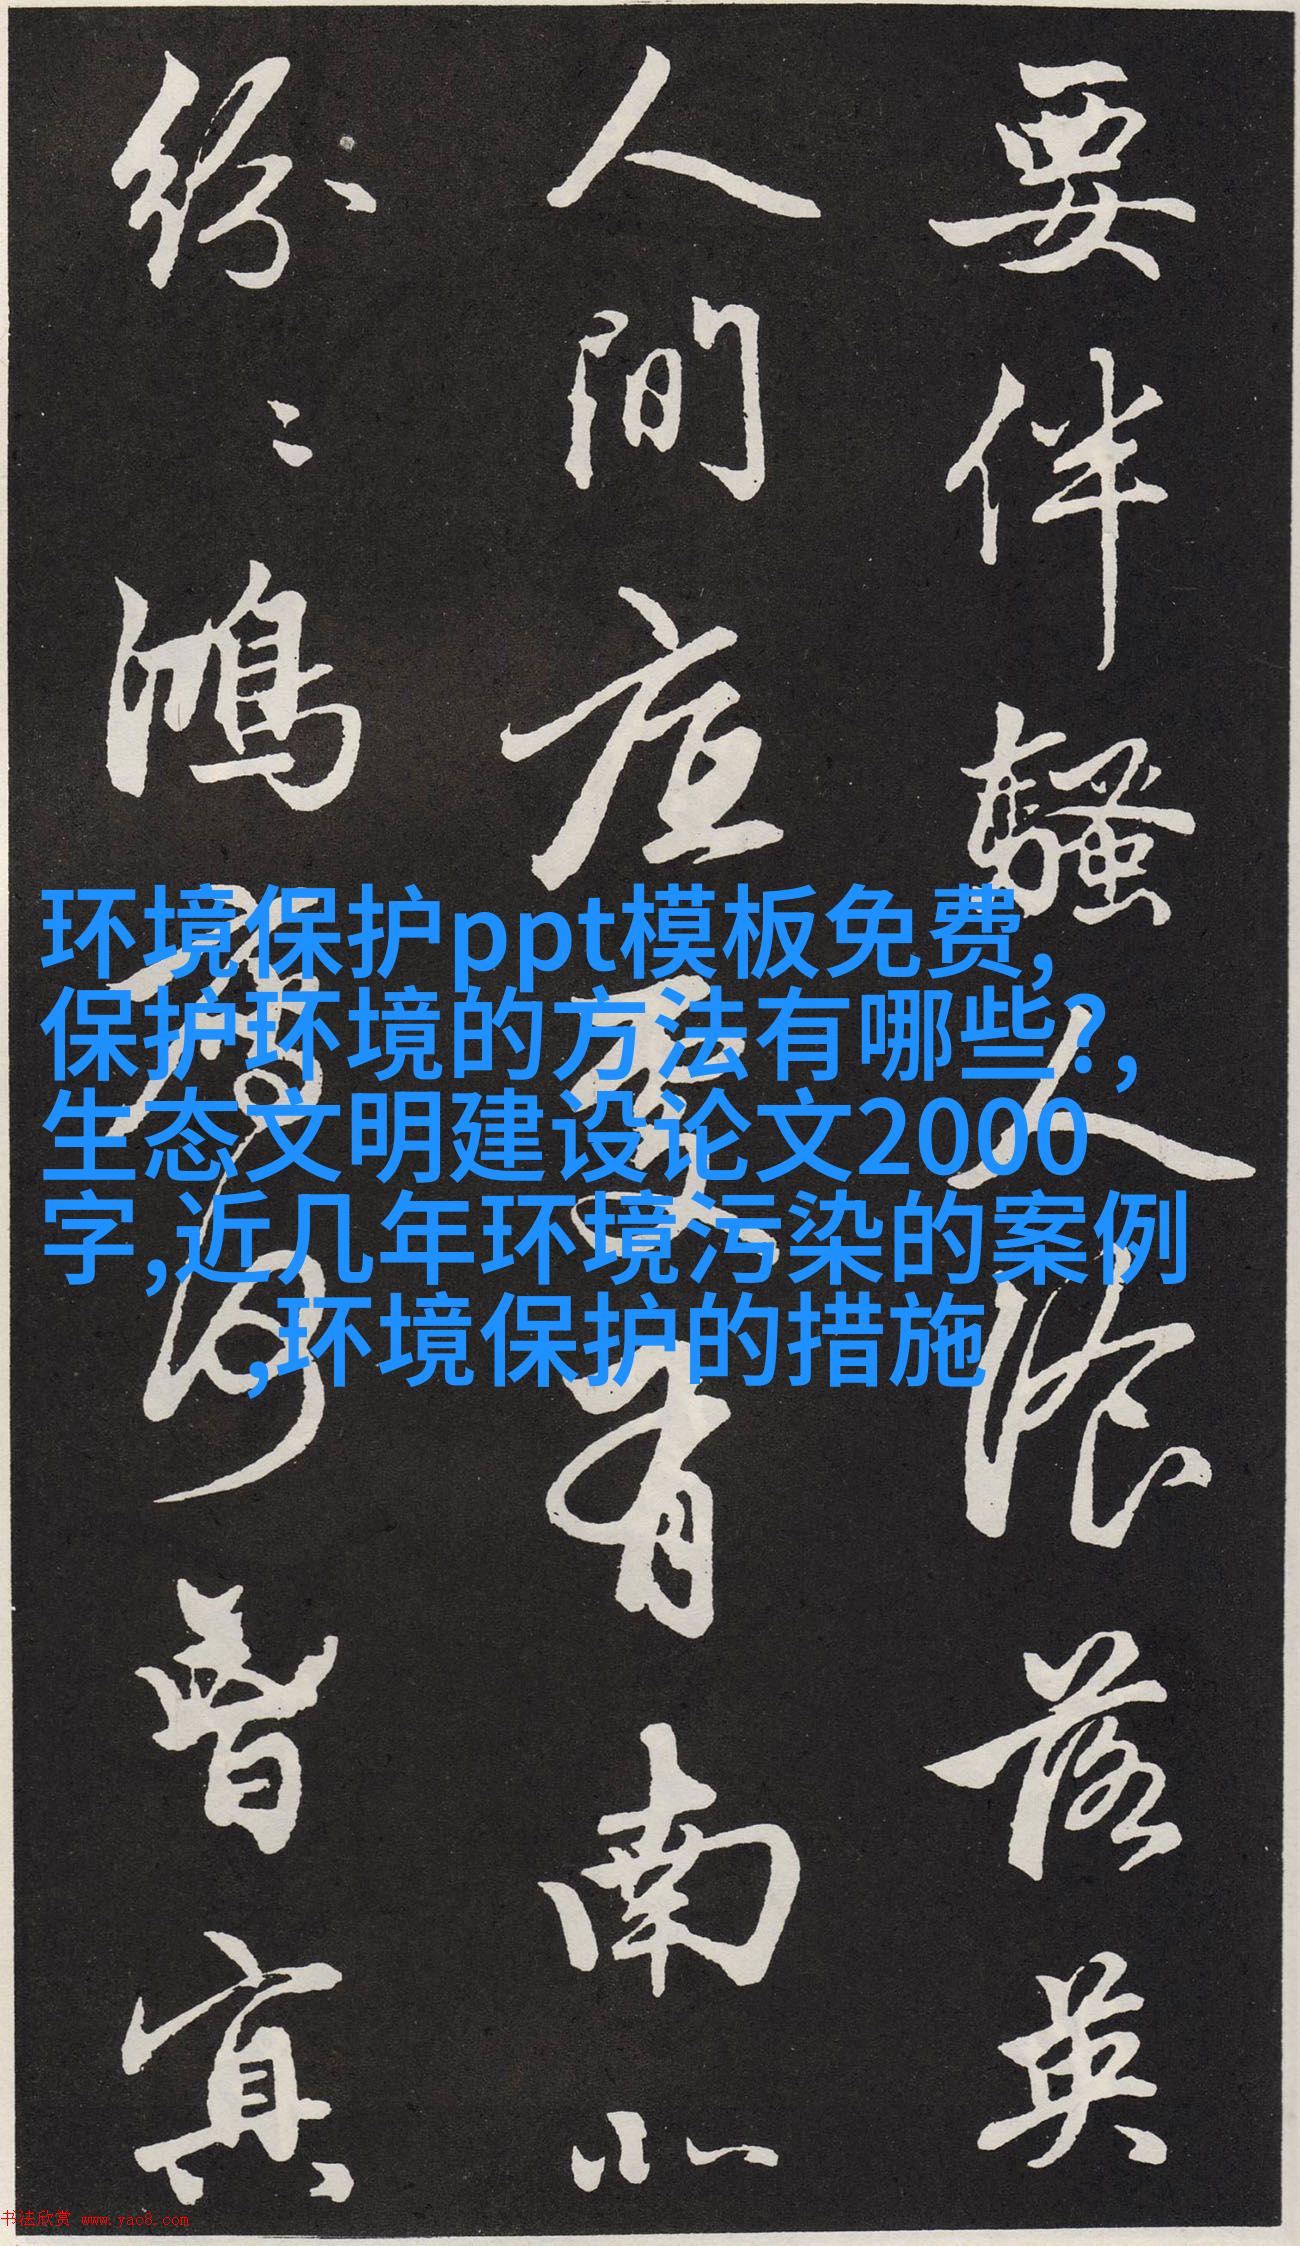 要伴騷人湌落英
人間底處有南北
紛〻鴻雁何曾冥
环境保护ppt模板免费,
保护环境的方法有哪些?,
生态文明建设论文2000
字,近几年环境污染的案例
,环境保护的措施
书法欣赏 www.yac8.com